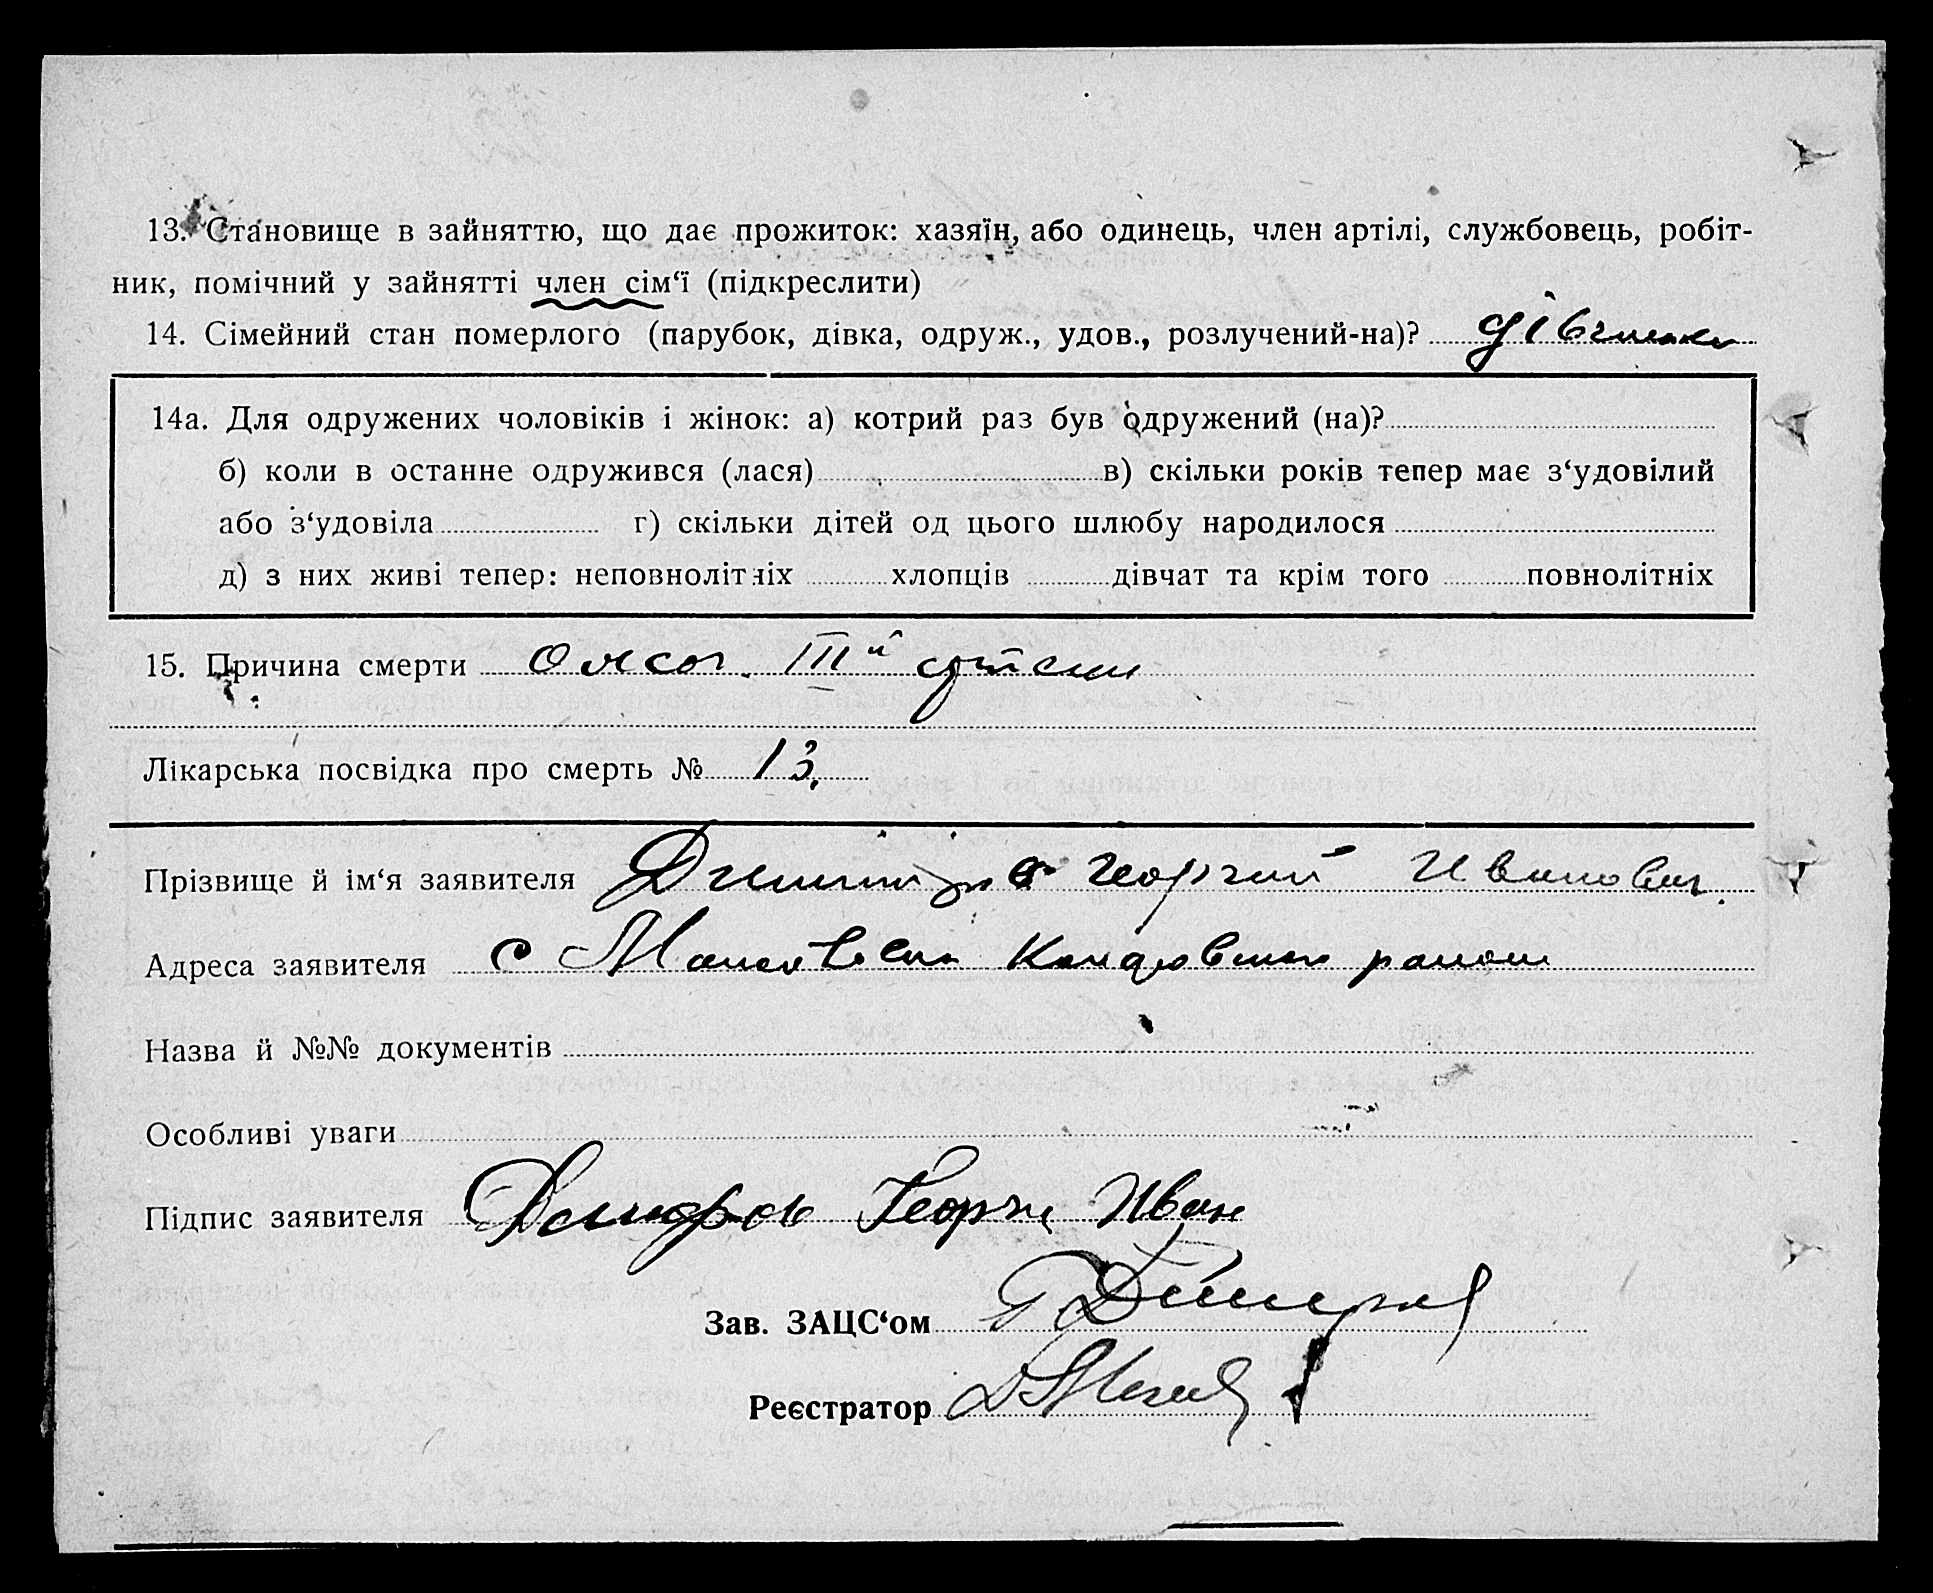 13. Становище в зайняттю, що дає прожиток: хазяїн, або одинець, член артілі, службовець, робіт-
ник, помічний у зайнятті член сім‘ї (підкреслити)
14. Сімейний стан померлого (парубок, дівка, одруж., удов., розлучений-на)? дівчинка
14а. Для одружених чоловіків і жінок: а) котрий раз був одружений (на)?
б) коли в останне одружився (лася) в) скільки років тепер має з‘удовілий
або з‘удовіла г) скільки дітей од цього шлюбу народилося
д) з них живі тепер: неповнолітніх хлопців дівчат та крім того повнолітніх
15. Причина смерти ожог IIIй
Лікарська посвідка про смерть № 13.
Прізвище й ім‘я заявителя Георгий Иванович
Адреса заявителя с района
Назва й №№ документів
Особливі уваги
Підпис заявителя Георги Иван
Зав. ЗАЦС‘ом
Реєстратор